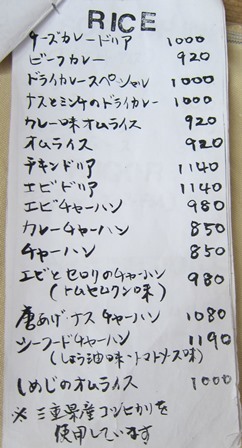 RICE
チーズカレードリア 1000
ビーフカレー 920
ドライカレースペシャル 1000
ナスとミンチのドライカレー 1000
カレー味オムライス 920
オムライス 920
チキンドリア 1140
エビドリア 1140
エビチャーハン 980
カレーチャーハン 850
チャーハン 850
エビとセロリのチャーハン 980
(トムヤムクン味)
唐あげ・ナスチャーハン 1080
シーフードチャーハン 1190
(しょう油味・トマトソース味)
しめじのオムライス 1000
※三重県産コシヒカリを
使用しています